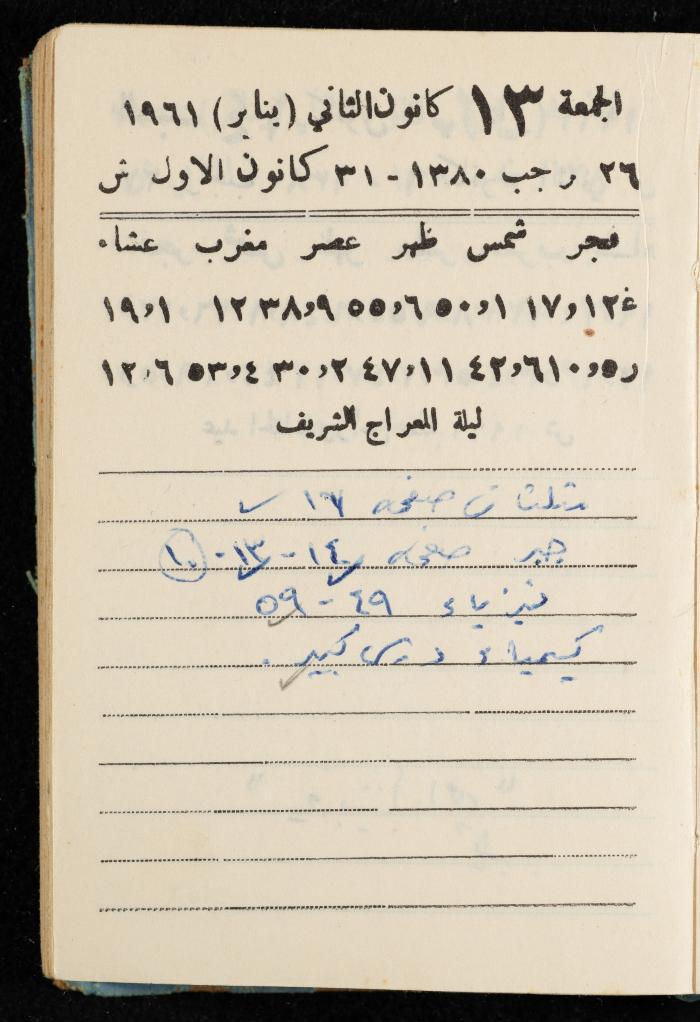 الجمعة ١٣ كانون الثاني (يناير) ١٩٦١
٢٦ رجب ١٣٨٠ - ٣١ كانون الاول ش
فجر شمس ظهر عصر مغرب عشاء
غ ١٢,١٧ ١,٥٠ ٦,٥٥ ٩,٣٨ ١٢ ١,١٩
ر ٥,١٠ ٦,٤٢ ١١,٤٧ ٢,٣٠ ٤,٥٣ ٦,١٢
ليلة المعراج الشريف
مثلثات صفحه ١٦
جبر صفحه ١٤ - ١٣ - ١٠
فيزياء ٤٩ - ٥٩
كيمياء درس كبير .